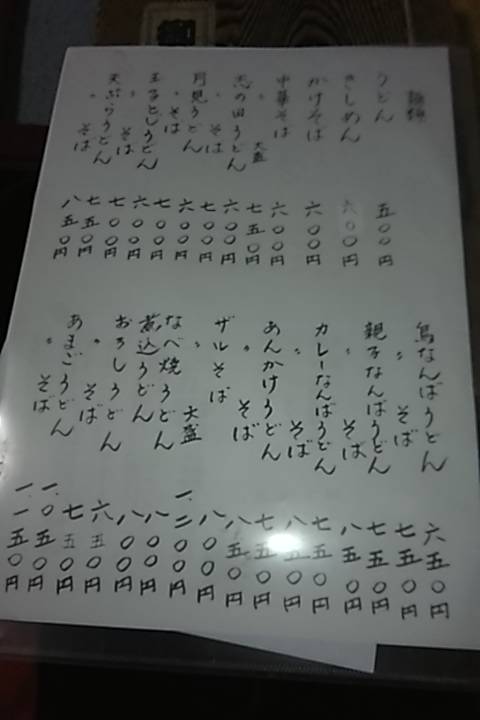 麺類
うどん 五〇〇円
きしめん 六〇〇円
かけそば 六〇〇円
中華そば 六〇〇円
〃 大盛 七五〇円
志の田うどん 六〇〇円
〃 そば 七〇〇円
月見うどん 六〇〇円
〃 そば 七〇〇円
玉子とじうどん 六〇〇円
〃 そば 七〇〇円
天ぷらうどん 七五〇円
〃 そば 八五〇円
鳥なんばうどん 六五〇円
〃 そば 七五〇円
親子なんばうどん 七五〇円
〃 そば 八五〇円
カレーなんばうどん 七五〇円
〃 そば 八五〇円
あんかけうどん 七五〇円
〃 そば 八五〇円
ザルそば 八〇〇円
〃 大盛 一、二〇〇円
なべ焼うどん 八〇〇円
煮込うどん 八〇〇円
おろしうどん 六五〇円
〃 そば 七五〇円
あまごうどん 一、〇五〇円
〃 そば 一、一五〇円